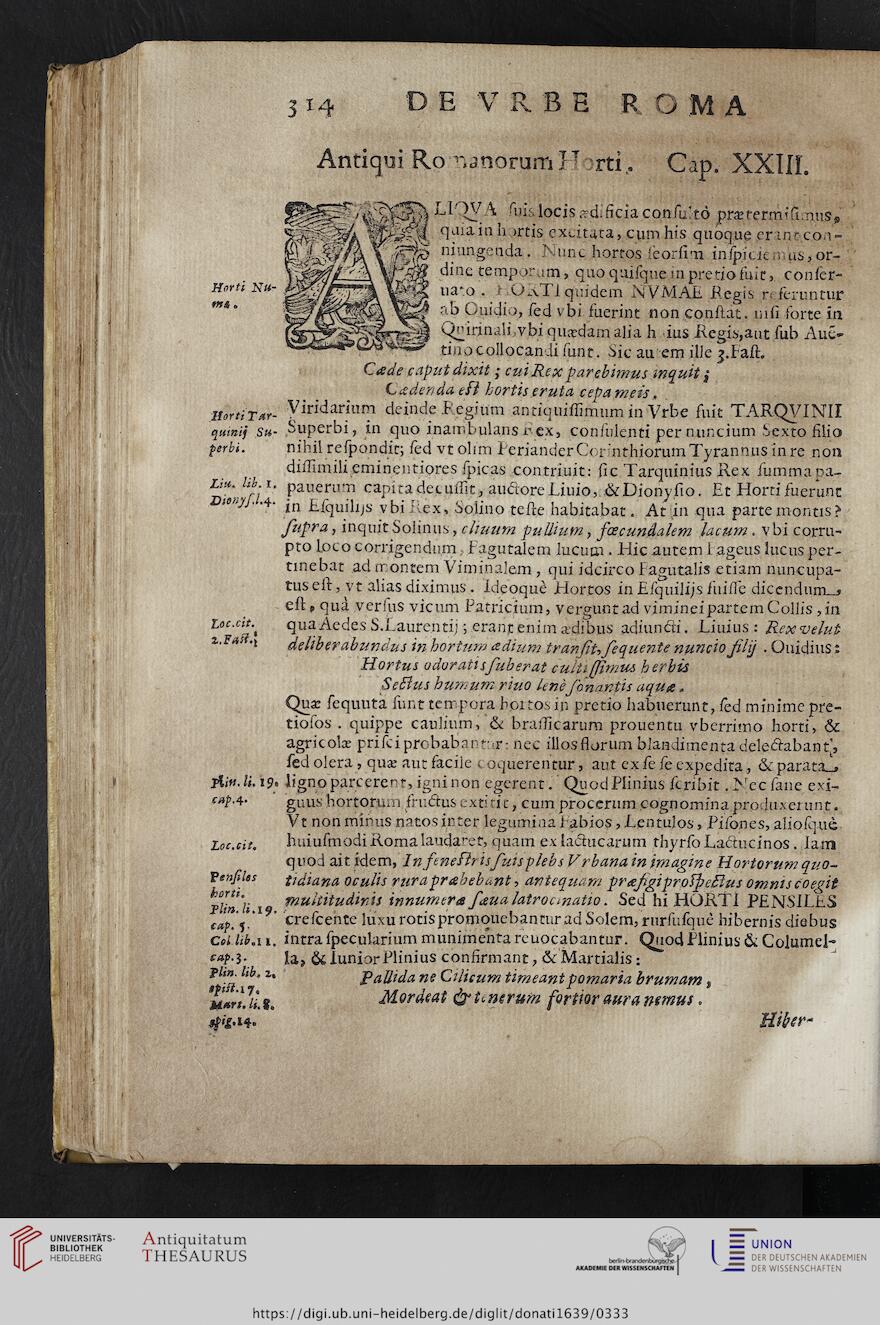 314 DE VRBE ROMA
Antiqui Romanorum Horti. Cap. XXIII.
ALIQVA ſuis locis ædificia conſultò prætermiſimus,
quia in hortis excitata, cum his quoque erant con-
niungenda. Nunc hortos ſeorſim inſpiciemus, or-
dine temporum, quo quiſque in pretio fuit, conſer-
uato. HORTI quidem NVMAE Regis referuntur
Horti Nu-
mæ.
ab Ouidio, ſed vbi fuerint non conſtat. niſi forte in
Quirinali, vbi quædam alia huius Regis, aut ſub Auē-
tino collocandi ſunt. Sic autem ille 3. Faſt.
Cæde caput dixit; cui Rex parebimus inquit;
Cædenda eſt hortis eruta cepa meis.
Viridarium deinde Regium antiquiſſimum in Vrbe fuit TARQVINII
Horti Tar-
quinij Su-
perbi.
Superbi, in quo inambulans Rex, conſulenti per nuncium Sexto filio
nihil reſpondit; ſed vt olim Periander Corinthiorum Tyrannus in re non
diſſimili eminentiores ſpicas contriuit: ſic Tarquinius Rex ſumma pa-
Liu. lib. 1.
Dionyſ.l.4.
pauerum capita decuſſit, auctore Liuio, & Dionyſio. Et Horti fuerunt
in Eſquilijs vbi Rex, Solino teſte habitabat. At in qua parte montis?
ſupra, inquit Solinus, cliuum pullium, fœcundalem lacum. vbi corru-
pto loco corrigendum, Fagutalem lucum. Hic autem Fageus lucus per-
tinebat ad montem Viminalem, qui idcirco Fagutalis etiam nuncupa-
tus eſt, vt alias diximus. Ideoquè Hortos in Eſquilijs fuiſſe dicendum
eſt, quà verſus vicum Patricium, vergunt ad viminei partem Collis, in
Loc.cit.
2.Faſt.
qua Aedes S. Laurentij; erant enim ædibus adiuncti. Liuius: Rex velut
deliberabundus in hortum ædium tranſit, ſequente nuncio filij. Ouidius:
Hortus odoratis ſuberat cultiſſimus herbis
Sectus humum riuo lenè ſonantis aquæ.
Quæ ſequuta ſunt tempora hortos in pretio habuerunt, ſed minime pre-
tioſos. quippe caulium, & braſſicarum prouentu vberrimo horti, &
agricolæ priſci probabantur: nec illos florum blandimenta delectabant,
ſed olera, quæ aut facile coquerentur, aut ex ſe ſe expedita, & parata
Plin. li. 19.
cap.4.
ligno parcerent, igni non egerent. Quod Plinius ſcribit. Nec ſane exi-
guus hortorum fructus extitit, cum procerum cognomina produxerunt.
Vt non minus natos inter legumina Fabios, Lentulos, Piſones, alioſquè
Loc.cit.
huiuſmodi Roma laudaret, quam ex lactucarum thyrſo Lactucinos. Iam
quod ait idem, In feneſtris ſuis plebs Vrbana in imagine Hortorum quo-
Penſiles
horti.
Plin. li.19.
cap. 5.
Col. lib.11.
cap.3.
Plin. lib. 2.
epiſt.17.
Mart. li.8.
epig.14.
tidiana oculis rura præbebant, antequam præfigi proſpectus omnis coegit
multitudinis innumeræ ſæua latrocinatio. Sed hi HORTI PENSILES
creſcente luxu rotis promouebantur ad Solem, rurſuſquè hibernis diebus
intra ſpecularium munimenta reuocabantur. Quod Plinius & Columel-
la, & Iunior Plinius confirmant, & Martialis:
Pallida ne Cilicum timeant pomaria brumam,
Mordeat & tenerum fortior aura nemus.
Hiber-
UNIVERSITÄTS-
BIBLIOTHEK
HEIDELBERG
Antiquitatum
THESAURUS
berlin-brandenburgische
AKADEMIE DER WISSENSCHAFTEN
UNION
DER DEUTSCHEN AKADEMIEN
DER WISSENSCHAFTEN
https://digi.ub.uni-heidelberg.de/diglit/donati1639/0333